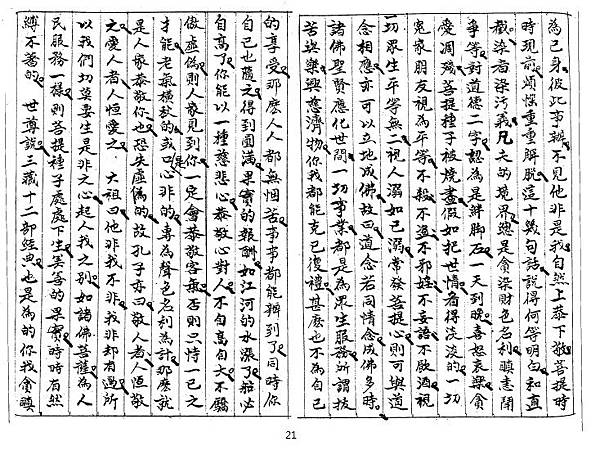 為己身彼此事辦不見他非是我自然上恭下敬菩提時
時現前煩惱重重解脫這十幾句話說得何等明白知直
截染著染污義凡夫的境界總是貪染財色名利瞋恚鬭
爭等對道德二字認為是絆腳石一天到晚喜怒哀樂貪
愛凋殘菩提種子被燒盡假如把世情看得淡淡的一切
冤家朋友視為平等不殺不盜不邪婬不妄語不飲酒視
一切眾生平等無二視人溺如己溺常發菩提心則可與道
念相應亦可以立地成佛故曰道念若同情念成佛多時
諸佛聖賢應化世間一切事業都是為眾生服務所謂拔
苦與樂興慈濟物你我都能克己復禮甚麽也不為自己
的享受那麽人人都無悃苦事事都能辦到了同時你
自己也隨之得到圓滿果實的報酬如江河的水漲了船必
自高了你能以一種慈悲心恭敬心對人不自高自大不驕
傲虛偽則人家見到你一定會恭敬客氣否則只恃一己之
才能老氣橫秋的或口是心非的專為聲色名利為計那麽就
是人家恭敬你也恐失虛偽的故孔子亦曰敬人者人恒敬
之愛人者人恒愛之 大祖曰他非我不非我非却有過所
以我們切莫要生是非之心起人我之別如諸佛菩薩為人
民服務一樣則菩提種子處處下生美善的果實時時自然
縛不著的 世尊談三藏十二部經典也是為的你我貪瞋
21